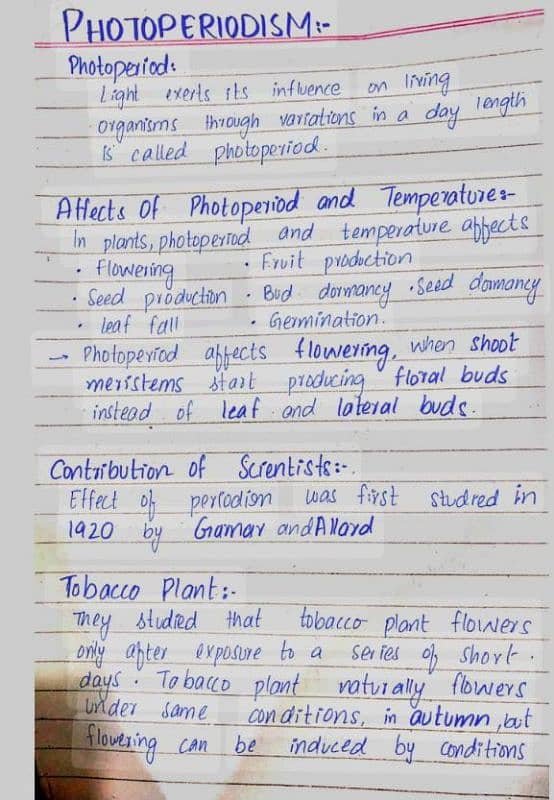 PHOTOPERIODISM:-
Photoperiod:
Light exerts its influence on living
organisms through variations in a day length
is called photoperiod.
Affects Of Photoperiod and Temperature:-
In plants, photoperiod and temperature affects
• flowering • Fruit production
• Seed production • Bud dormancy • Seed dormancy
• leaf fall • Germination.
→ Photoperiod affects flowering, when shoot
meristems start producing floral buds
instead of leaf and lateral buds.
Contribution of Scientists:-
Effect of periodism was first studied in
1920 by Gamar and Allard
Tobacco Plant:-
They studied that tobacco plant flowers
only after exposure to a series of short
days. Tobacco plant naturally flowers
under same conditions, in autumn, but
flowering can be induced by conditions